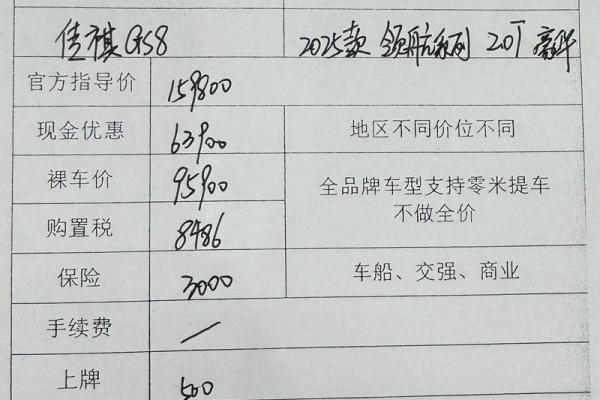 佳祺GS8 2025款 领航系列 2.0T 豪华
官方指导价 159800
现金优惠 63900 地区不同价位不同
裸车价 95900 全品牌车型支持零米提车
不做全价
购置税 8486
保险 3000 车船、交强、商业
手续费 /
上牌 500